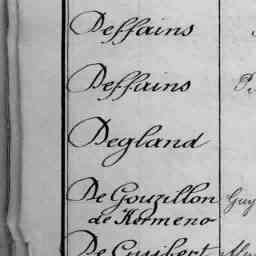 Deffains
Deffains P.
Degland
De Gouzillon Guy
de Kermeno
De Guibert